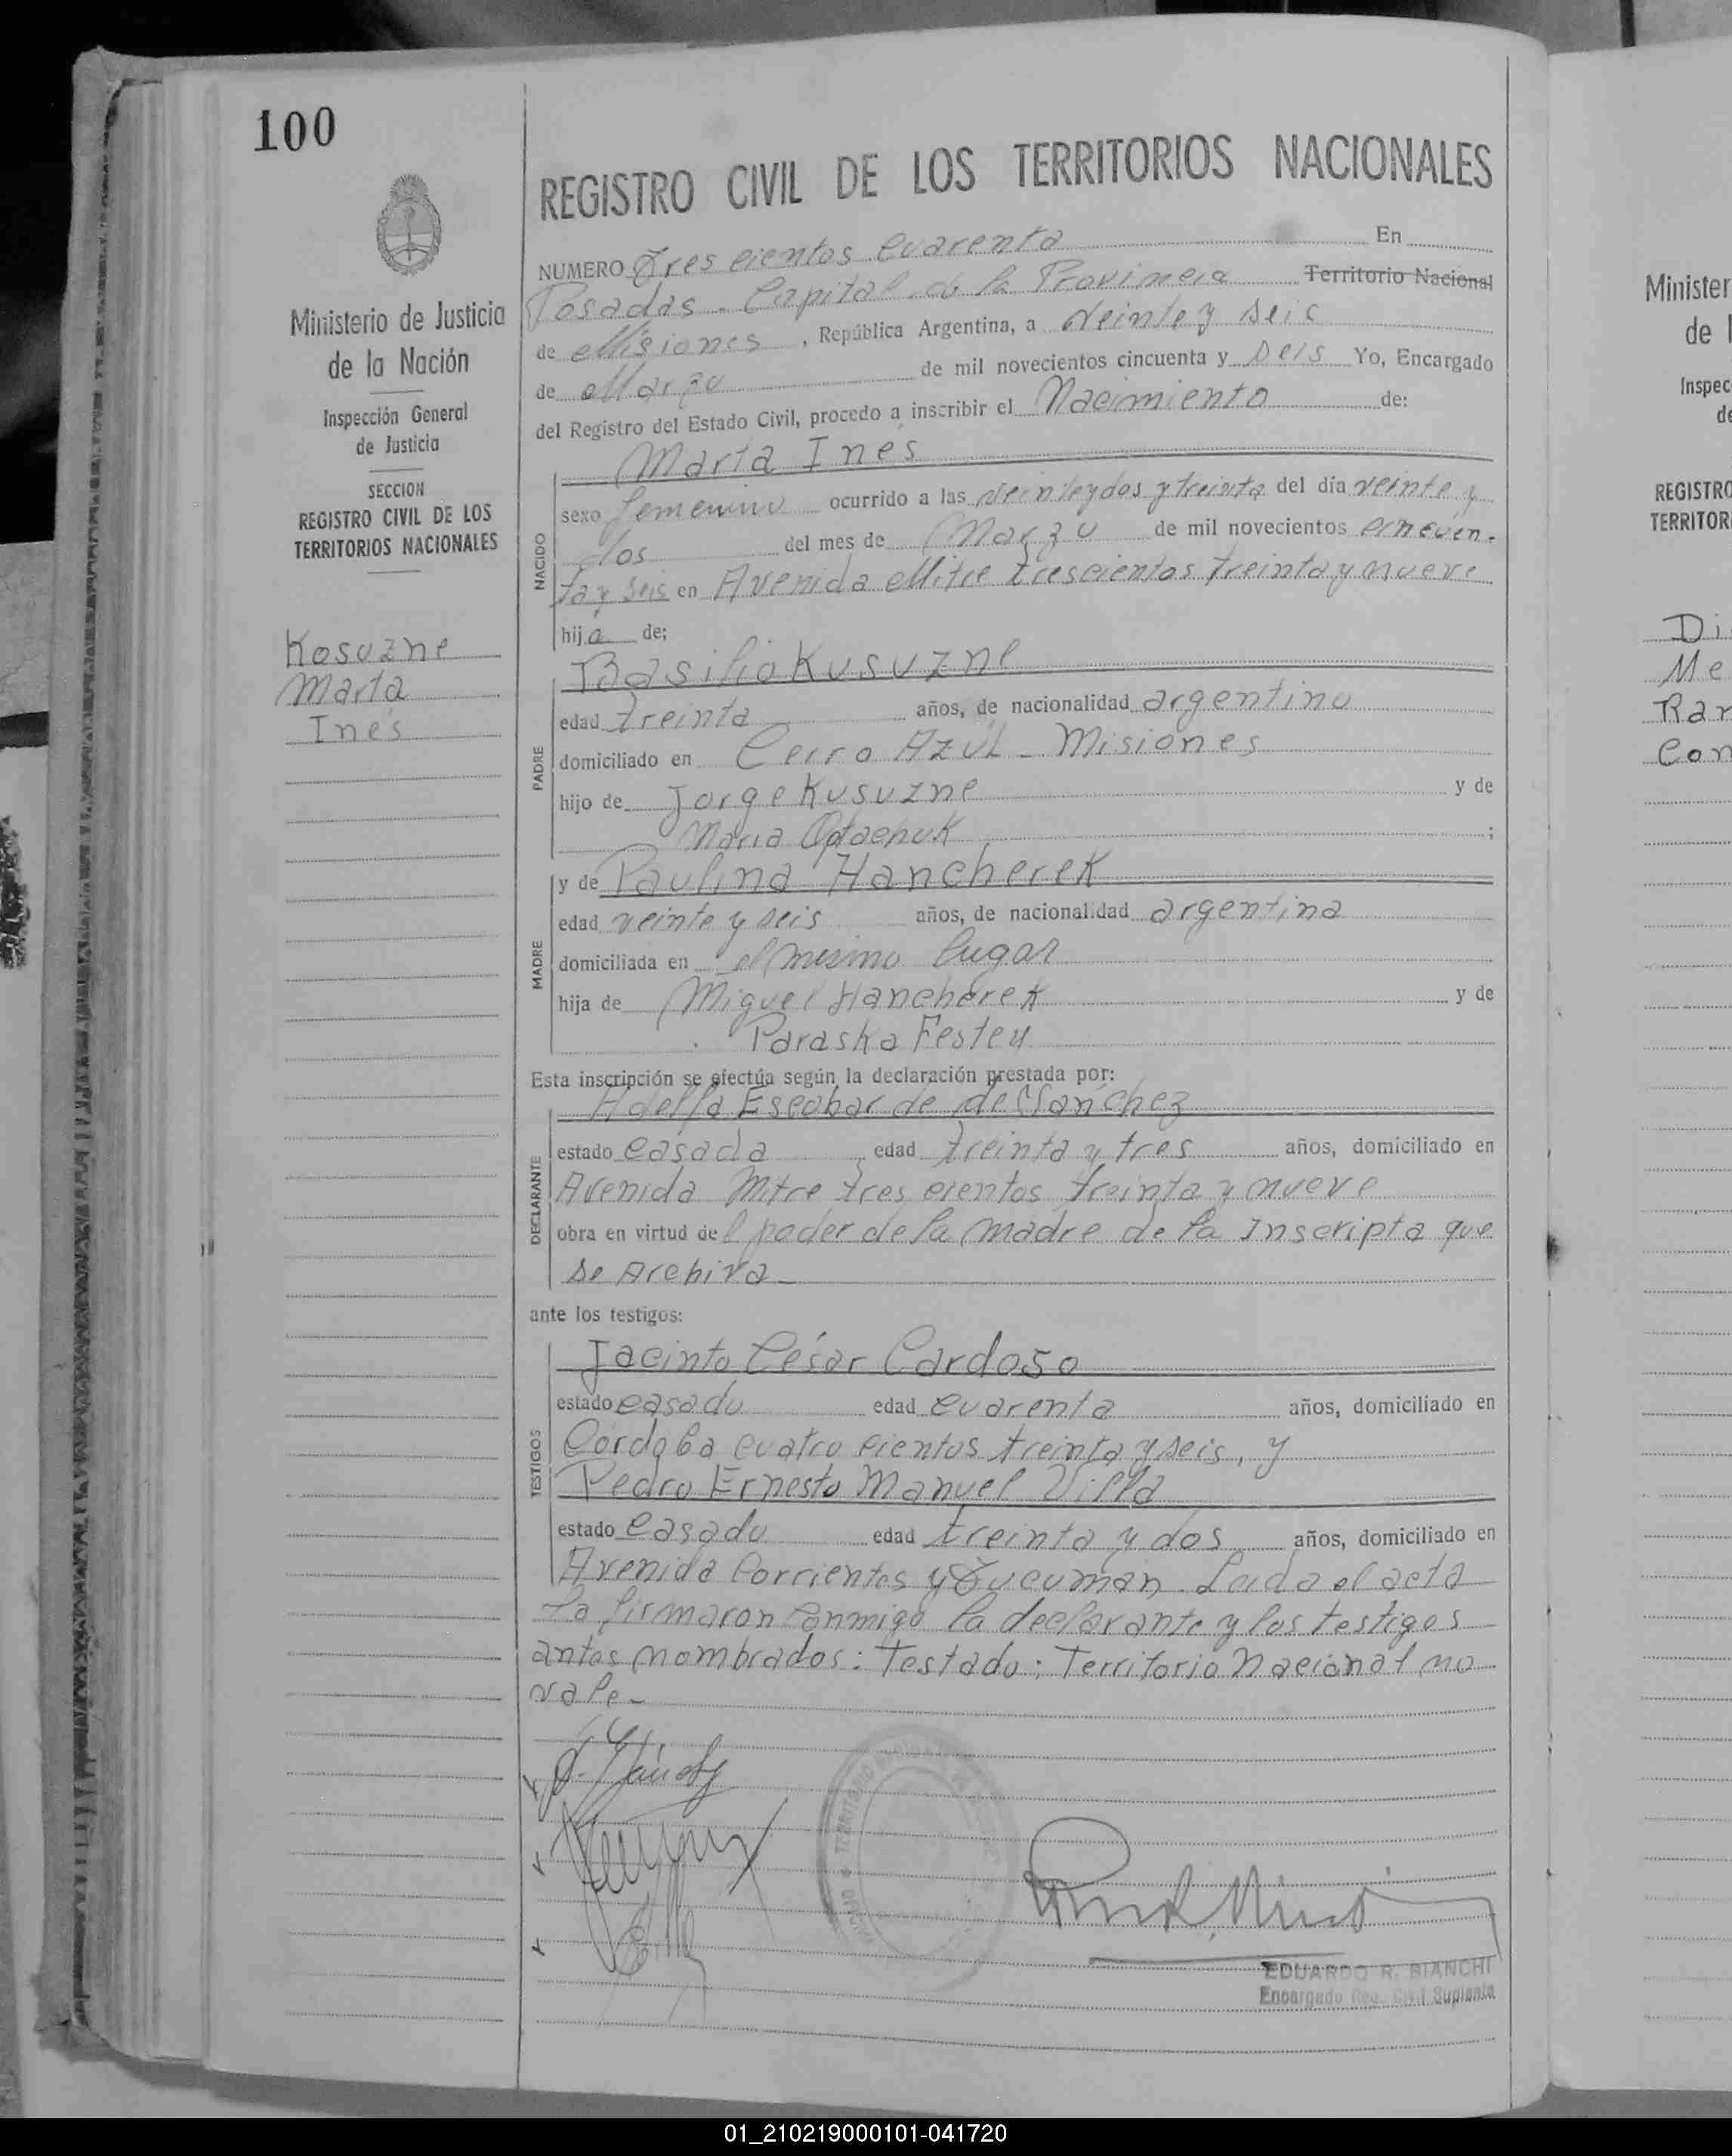 100
REGISTRO CIVIL DE LOS TERRITORIOS NACIONALES
NUMERO Trescientos Cuarenta En
Posadas - Capital de la Provincia Territorio Nacional
de Misiones, República Argentina, a Veinte y seis
de Marzo de mil novecientos cincuenta y Seis Yo, Encargado
del Registro del Estado Civil, procedo a inscribir el Nacimiento de:
Ministerio de Justicia
de la Nación
Inspección General
de Justicia
SECCION
REGISTRO CIVIL DE LOS
TERRITORIOS NACIONALES
Kosuzne
Marta
Inés
NACIDO
Marta Inés
sexo femenino ocurrido a las veinteydos y treinta del día veinte y
dos del mes de Marzo de mil novecientos cincuen-
ta y seis en Avenida Mitre trescientos treinta y nueve
hija de;
PADRE
Basilio Kusuzne
edad treinta años, de nacionalidad argentino
domiciliado en Cerro Azúl - Misiones
hijo de Jorge Kusuzne y de
Maria Optachuk ;
MADRE
y de Paulina Hancherek
edad veinte y seis años, de nacionalidad argentina
domiciliada en el mismo lugar
hija de Miguel Hancherek y de
Paraska Festeu
Esta inscripción se efectúa según la declaración prestada por:
DECLARANTE
Adella Escobar de de Sanchez
estado casada, edad treinta y tres años, domiciliado en
Avenida Mitre tres cientos treinta y nueve
obra en virtud del poder de la madre de la Inscripta que
se Archiva
ante los testigos:
TESTIGOS
Jacinto César Cardoso
estado casado edad cuarenta años, domiciliado en
Córdoba cuatro cientos treinta y seis, y
Pedro Ernesto Manuel Villa
estado casado edad treinta y dos años, domiciliado en
Avenida Corrientes y Tucumán. Leida el acta
la firmaron conmigo la declarante y los testigos
antes nombrados: Testado: Territorio Nacional no
vale-
EDUARDO R. BIANCHI
Encargado Reg. Civil Suplente
Minister
de l
Inspec
de
REGISTRO
TERRITOR
Di
Me
Rar
Con
01_210219000101-041720